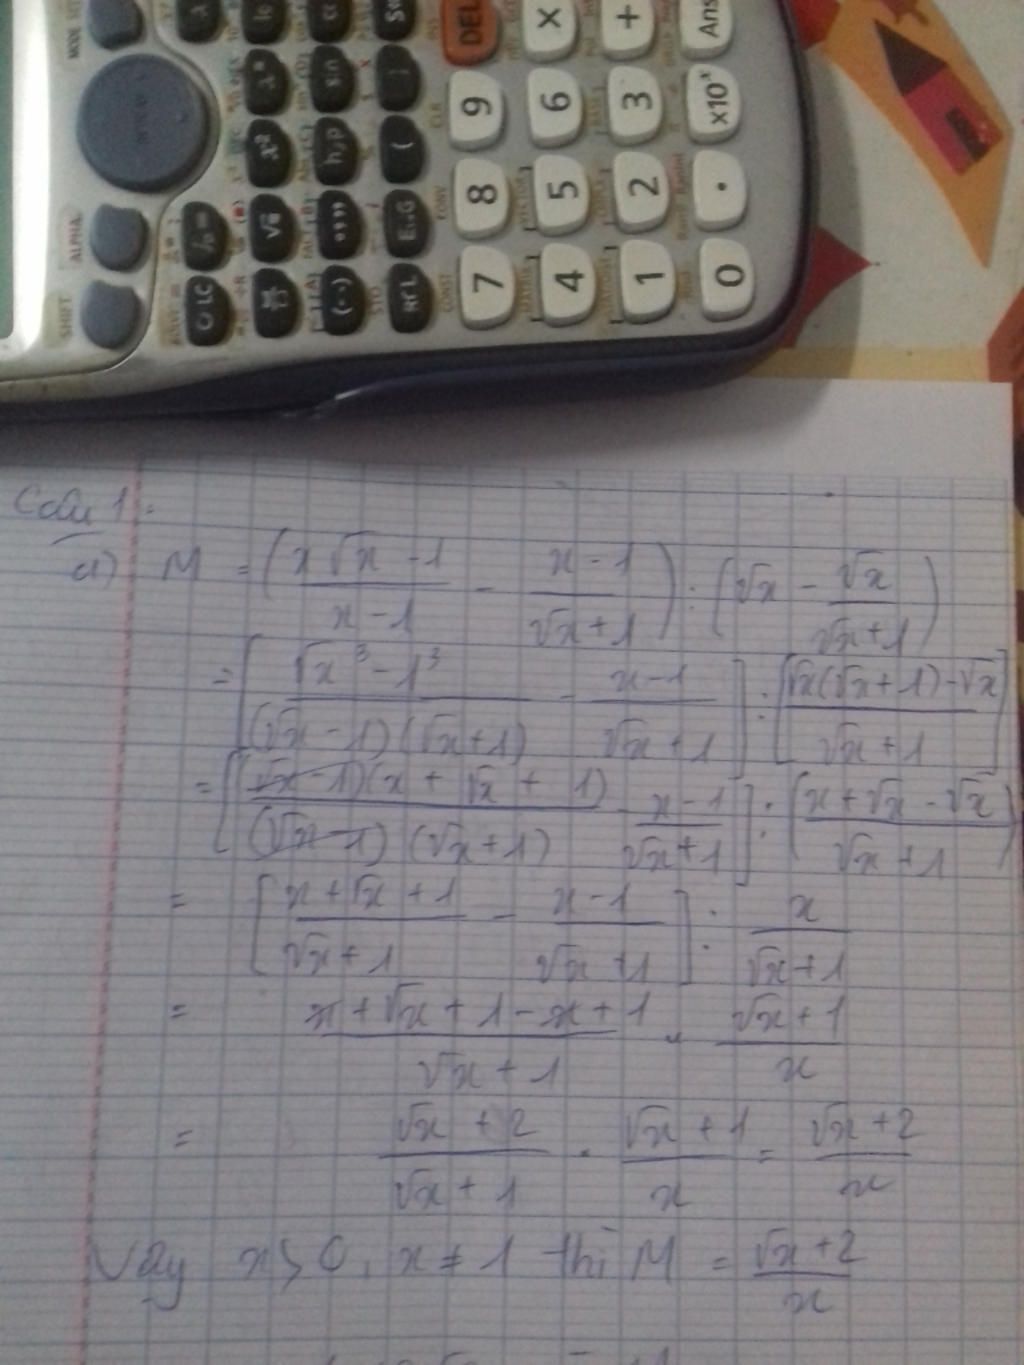 DEL
×
+
Ans
9
6
3
×10ˣ
8
5
2
.
7
4
1
0
x²
sin
hyp
(
√
°'"
ENG
(-)
RCL
CALC
SHIFT
ALPHA
MODE
Câu 1:
a) M = (x√x - 1 / x - 1 - x - 1 / √x + 1) : (√x - √x / √x + 1)
= [√x³ - 1³ / (√x - 1)(√x + 1) - x - 1 / √x + 1] : [√x(√x + 1) - √x / √x + 1]
= [(√x - 1)(x + √x + 1) / (√x - 1)(√x + 1) - x - 1 / √x + 1] : (x + √x - √x / √x + 1)
= [x + √x + 1 / √x + 1 - x - 1 / √x + 1] : x / √x + 1
= x + √x + 1 - x + 1 / √x + 1 . √x + 1 / x
= √x + 2 / √x + 1 . √x + 1 / x = √x + 2 / x
Vậy x > 0, x ≠ 1 thì M = √x + 2 / x